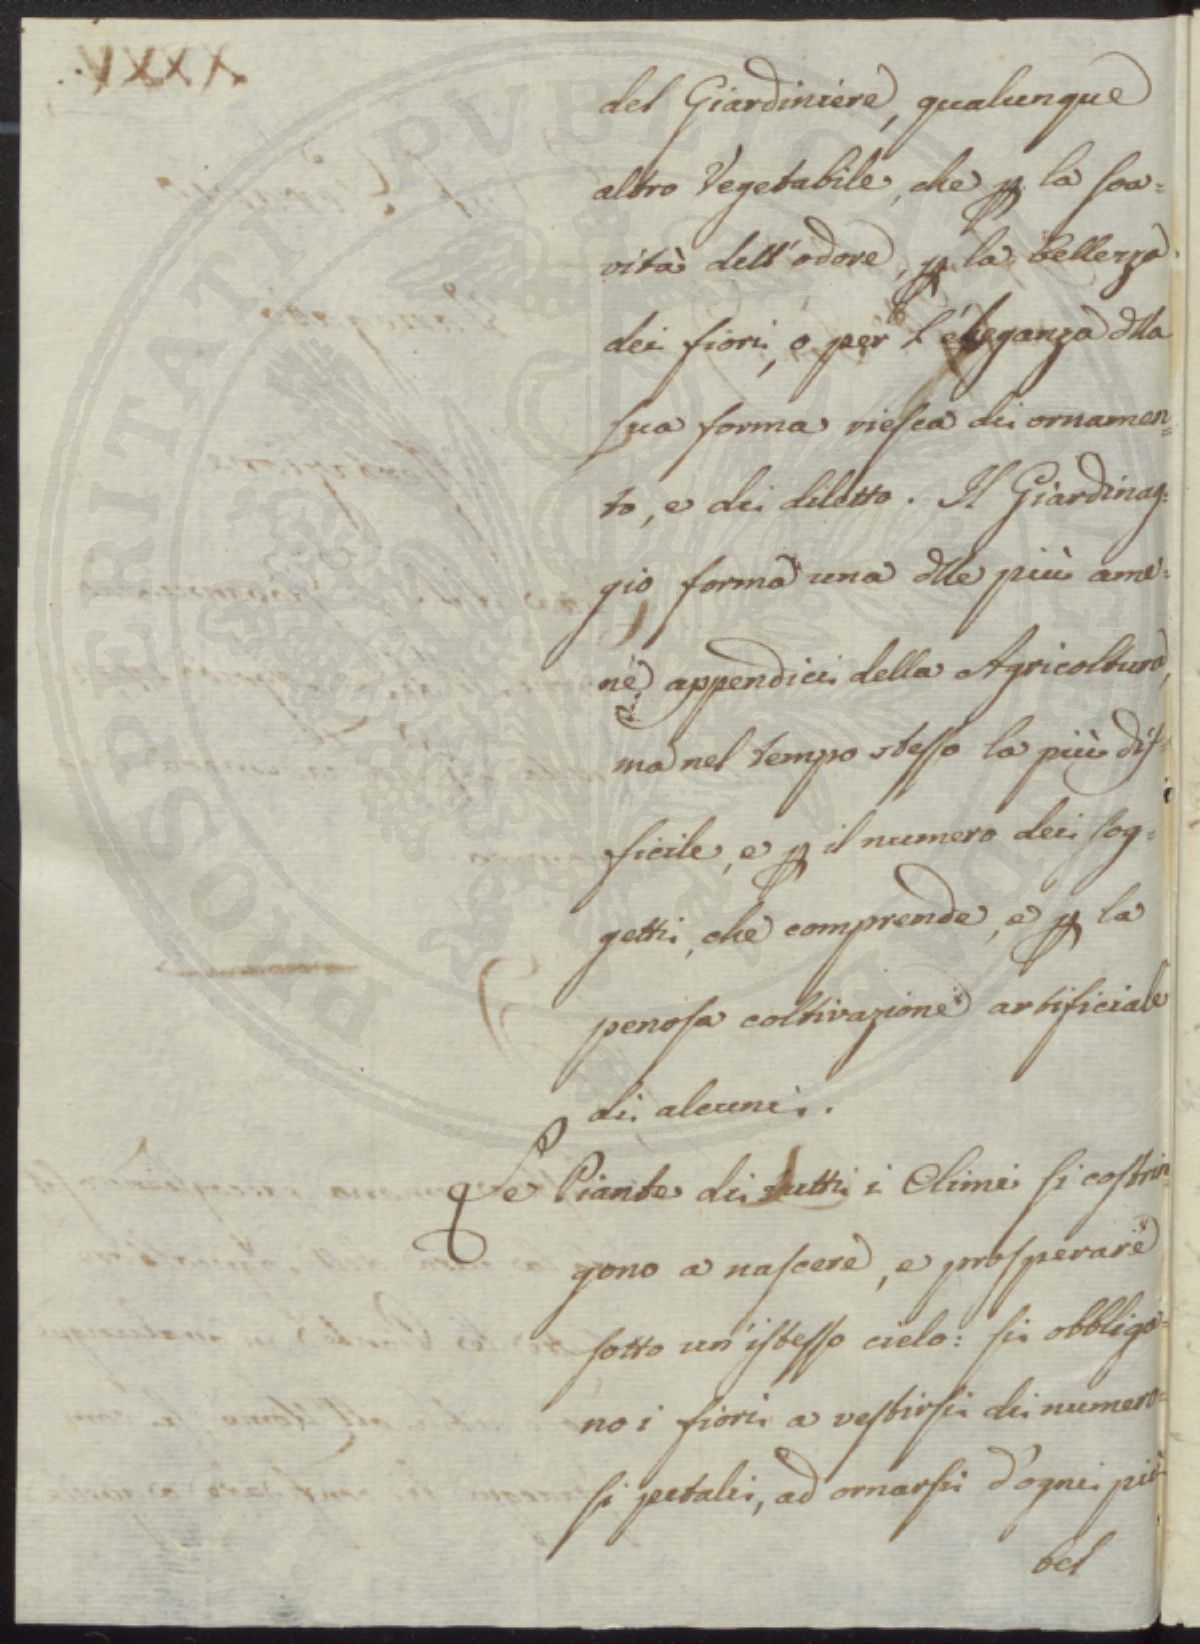 del Giardiniere, qualunque
altro Vegetabile, che p la soa=
vità dell'odore, p la bellezza
dei fiori, o per l'eleganza dlla
sua forma riesca di ornamen=
to, e di diletto. Il Giardinag=
gio forma una dlle più ame=
ne appendici della Agricoltura,
ma nel tempo stesso la più dif=
ficile, e p il numero dei sog=
getti, che comprende, e p la
penosa coltivazione artificiale
di alcuni.
Le Piante di tutti i Climi si costrin
gono a nascere, e prosperare
sotto un'istesso cielo: si obbliga=
no i fiori a vestirsi di numero=
si petali, ad ornarsi d'ogni più
bel
PROSPERITATI PUBLICAE